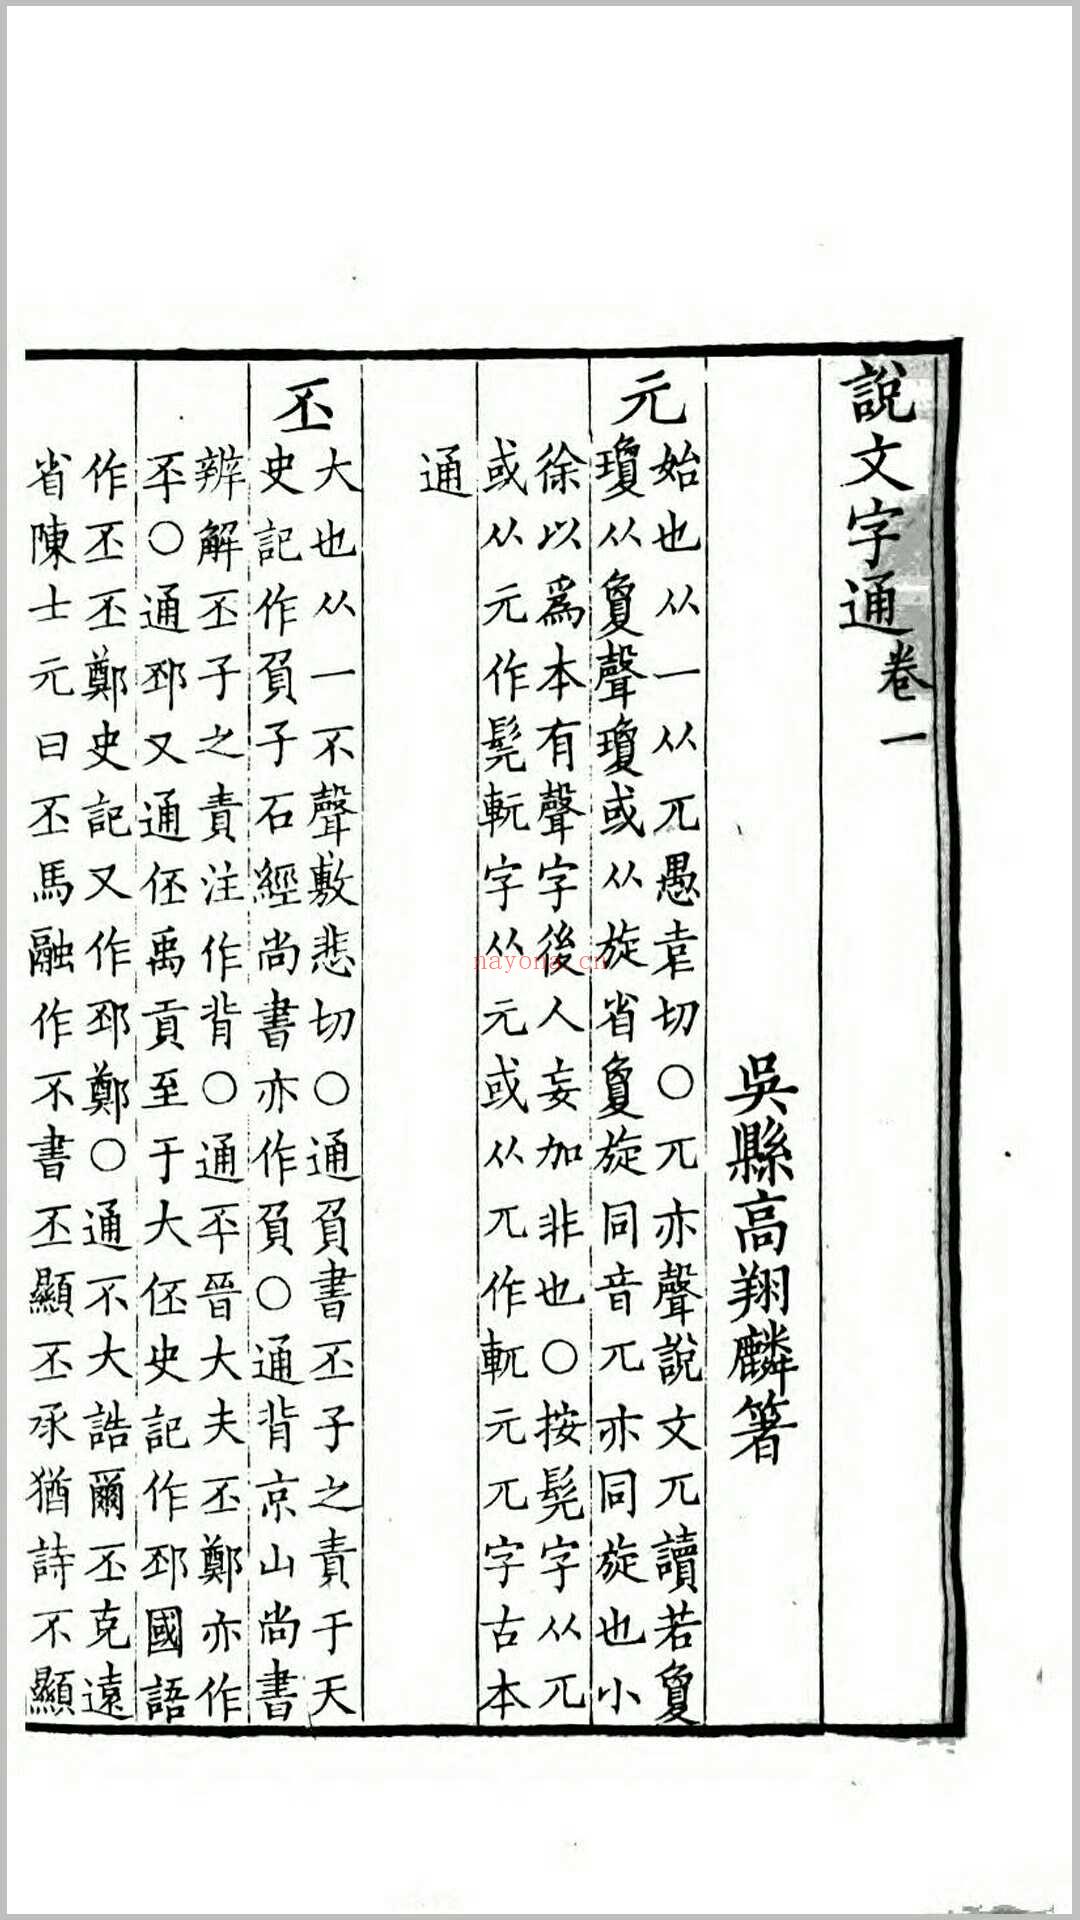 說文字通卷一
吳縣高翔麟箸
元
始也从一从兀愚袁切○兀亦聲說文兀讀若敻
瓊从敻聲瓊或从旋省敻旋同音兀亦同旋也小
徐以爲本有聲字後人妄加非也○按髡字从兀
或从元作髨軏字从元或从兀作軏元兀字古本
通
丕
大也从一不聲敷悲切○通負書丕子之責于天
史記作負子石經尚書亦作負○通背京山尚書
辨解丕子之責注作背○通㔻晉大夫丕鄭亦作
㔻○通邳又通伾禹貢至于大伾史記作邳國語
作丕丕鄭史記又作邳鄭○通不大誥爾丕克遠
省陳士元曰丕馬融作不書丕顯丕承猶詩不顯
nayona.cn